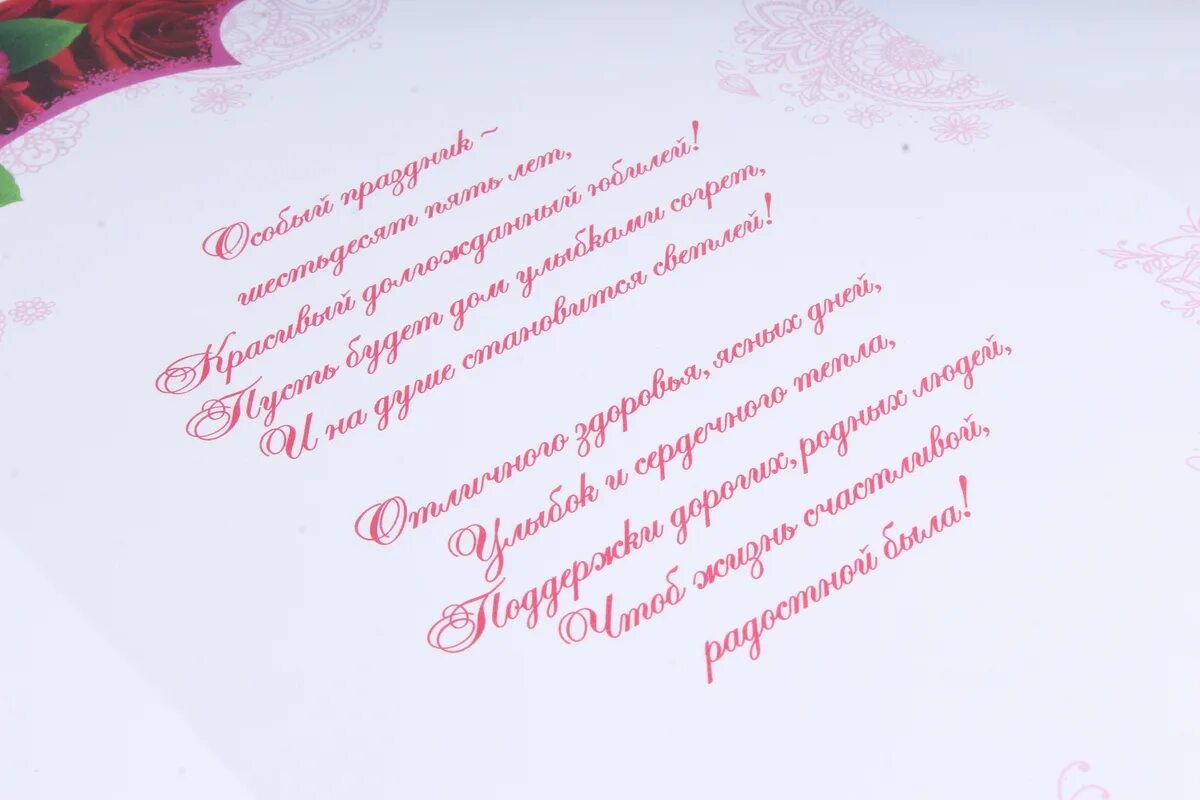 Особый праздник ~
шестьдесят пять лет,
Красивый долгожданный юбилей!
Пусть будет дом улыбками согрет,
И на душе становится светлей!
Отличного здоровья, ясных дней,
Улыбок и сердечного тепла,
Поддержки дорогих, родных людей,
Чтоб жизнь счастливой,
радостной была!